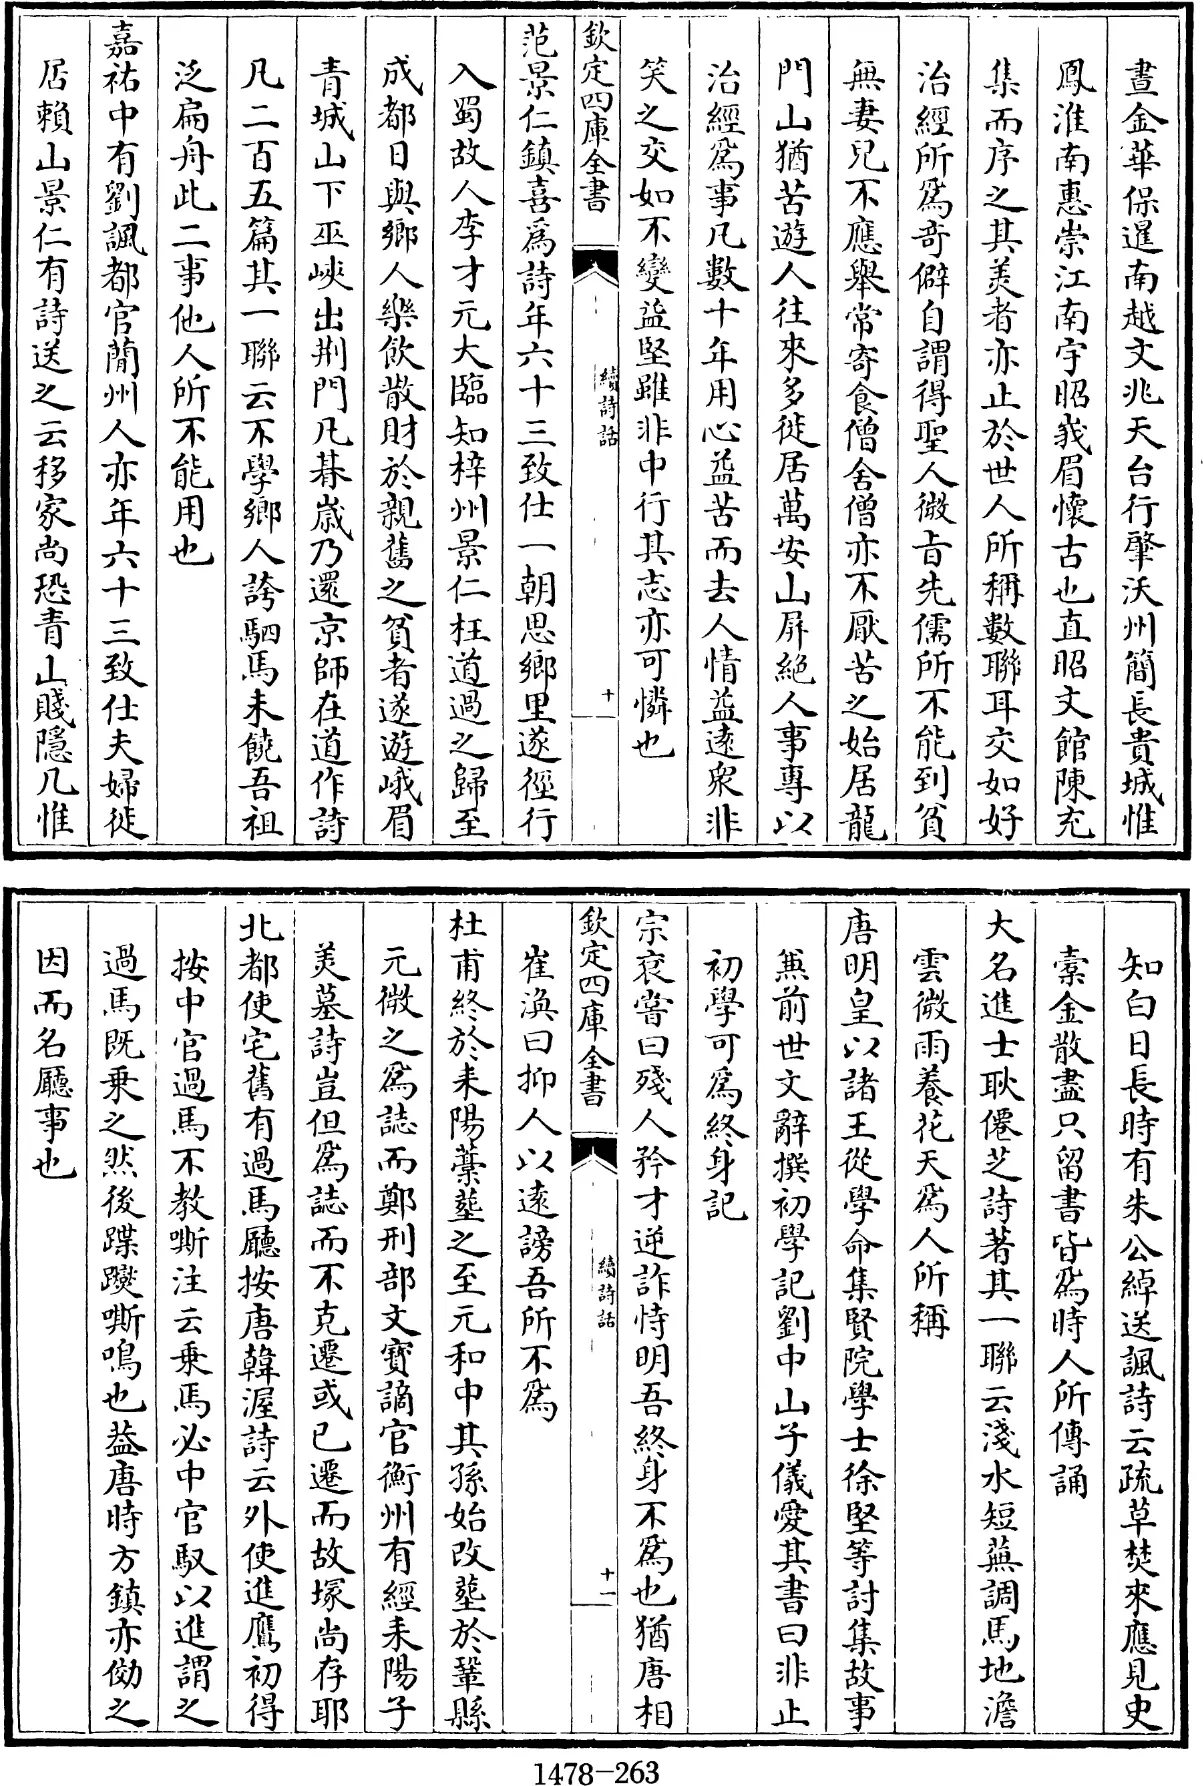 晝金華保暹南越文兆天台行肇沃州簡長貴城惟
鳳淮南惠崇江南宇昭峩眉懷古也直昭文館陳充
集而序之其美者亦止於世人所稱數聯耳交如好
治經所爲奇僻自謂得聖人微旨先儒所不能到貧
無妻兒不應舉常寄食僧舍僧亦不厭苦之始居龍
門山猶苦遊人往來多徙居萬安山屏絶人事專以
治經爲事凡數十年用心益苦而去人情益遠衆非
笑之交如不變益堅雖非中行其志亦可憐也
欽定四庫全書
續詩話
十
范景仁鎮喜爲詩年六十三致仕一朝思鄉里遂徑行
入蜀故人李才元大臨知梓州景仁枉道過之歸至
成都日與鄉人樂飲散財於親舊之貧者遂遊峨眉
青城山下巫峽出荆門凡朞歲乃還京師在道作詩
凡二百五篇其一聯云不學鄉人誇駟馬未饒吾祖
泛扁舟此二事他人所不能用也
嘉祐中有劉諷都官簡州人亦年六十三致仕夫婦徙
居賴山景仁有詩送之云移家尚恐青山賤隱几惟
知白日長時有朱公綽送諷詩云疏草焚來應見史
槖金散盡只留書皆爲時人所傳誦
大名進士耿僊芝詩著其一聯云淺水短蕪調馬地澹
雲微雨養花天爲人所稱
唐明皇以諸王從學命集賢院學士徐堅等討集故事
兼前世文辭撰初學記劉中山子儀愛其書曰非止
初學可爲終身記
宗衮嘗曰殘人矜才逆詐恃明吾終身不爲也猶唐相
欽定四庫全書
續詩話
十一
崔渙曰抑人以遠謗吾所不爲
杜甫終於耒陽藁塟之至元和中其孫始改塟於鞏縣
元微之爲誌而鄭刑部文寶謫官衡州有經耒陽子
美墓詩豈但爲誌而不克遷或已遷而故塚尚存耶
北都使宅舊有過馬廳按唐韓渥詩云外使進鷹初得
按中官過馬不教嘶注云乗馬必中官馭以進謂之
過馬既乗之然後蹀躞嘶鳴也葢唐時方鎮亦傚之
因而名廳事也
1478-263